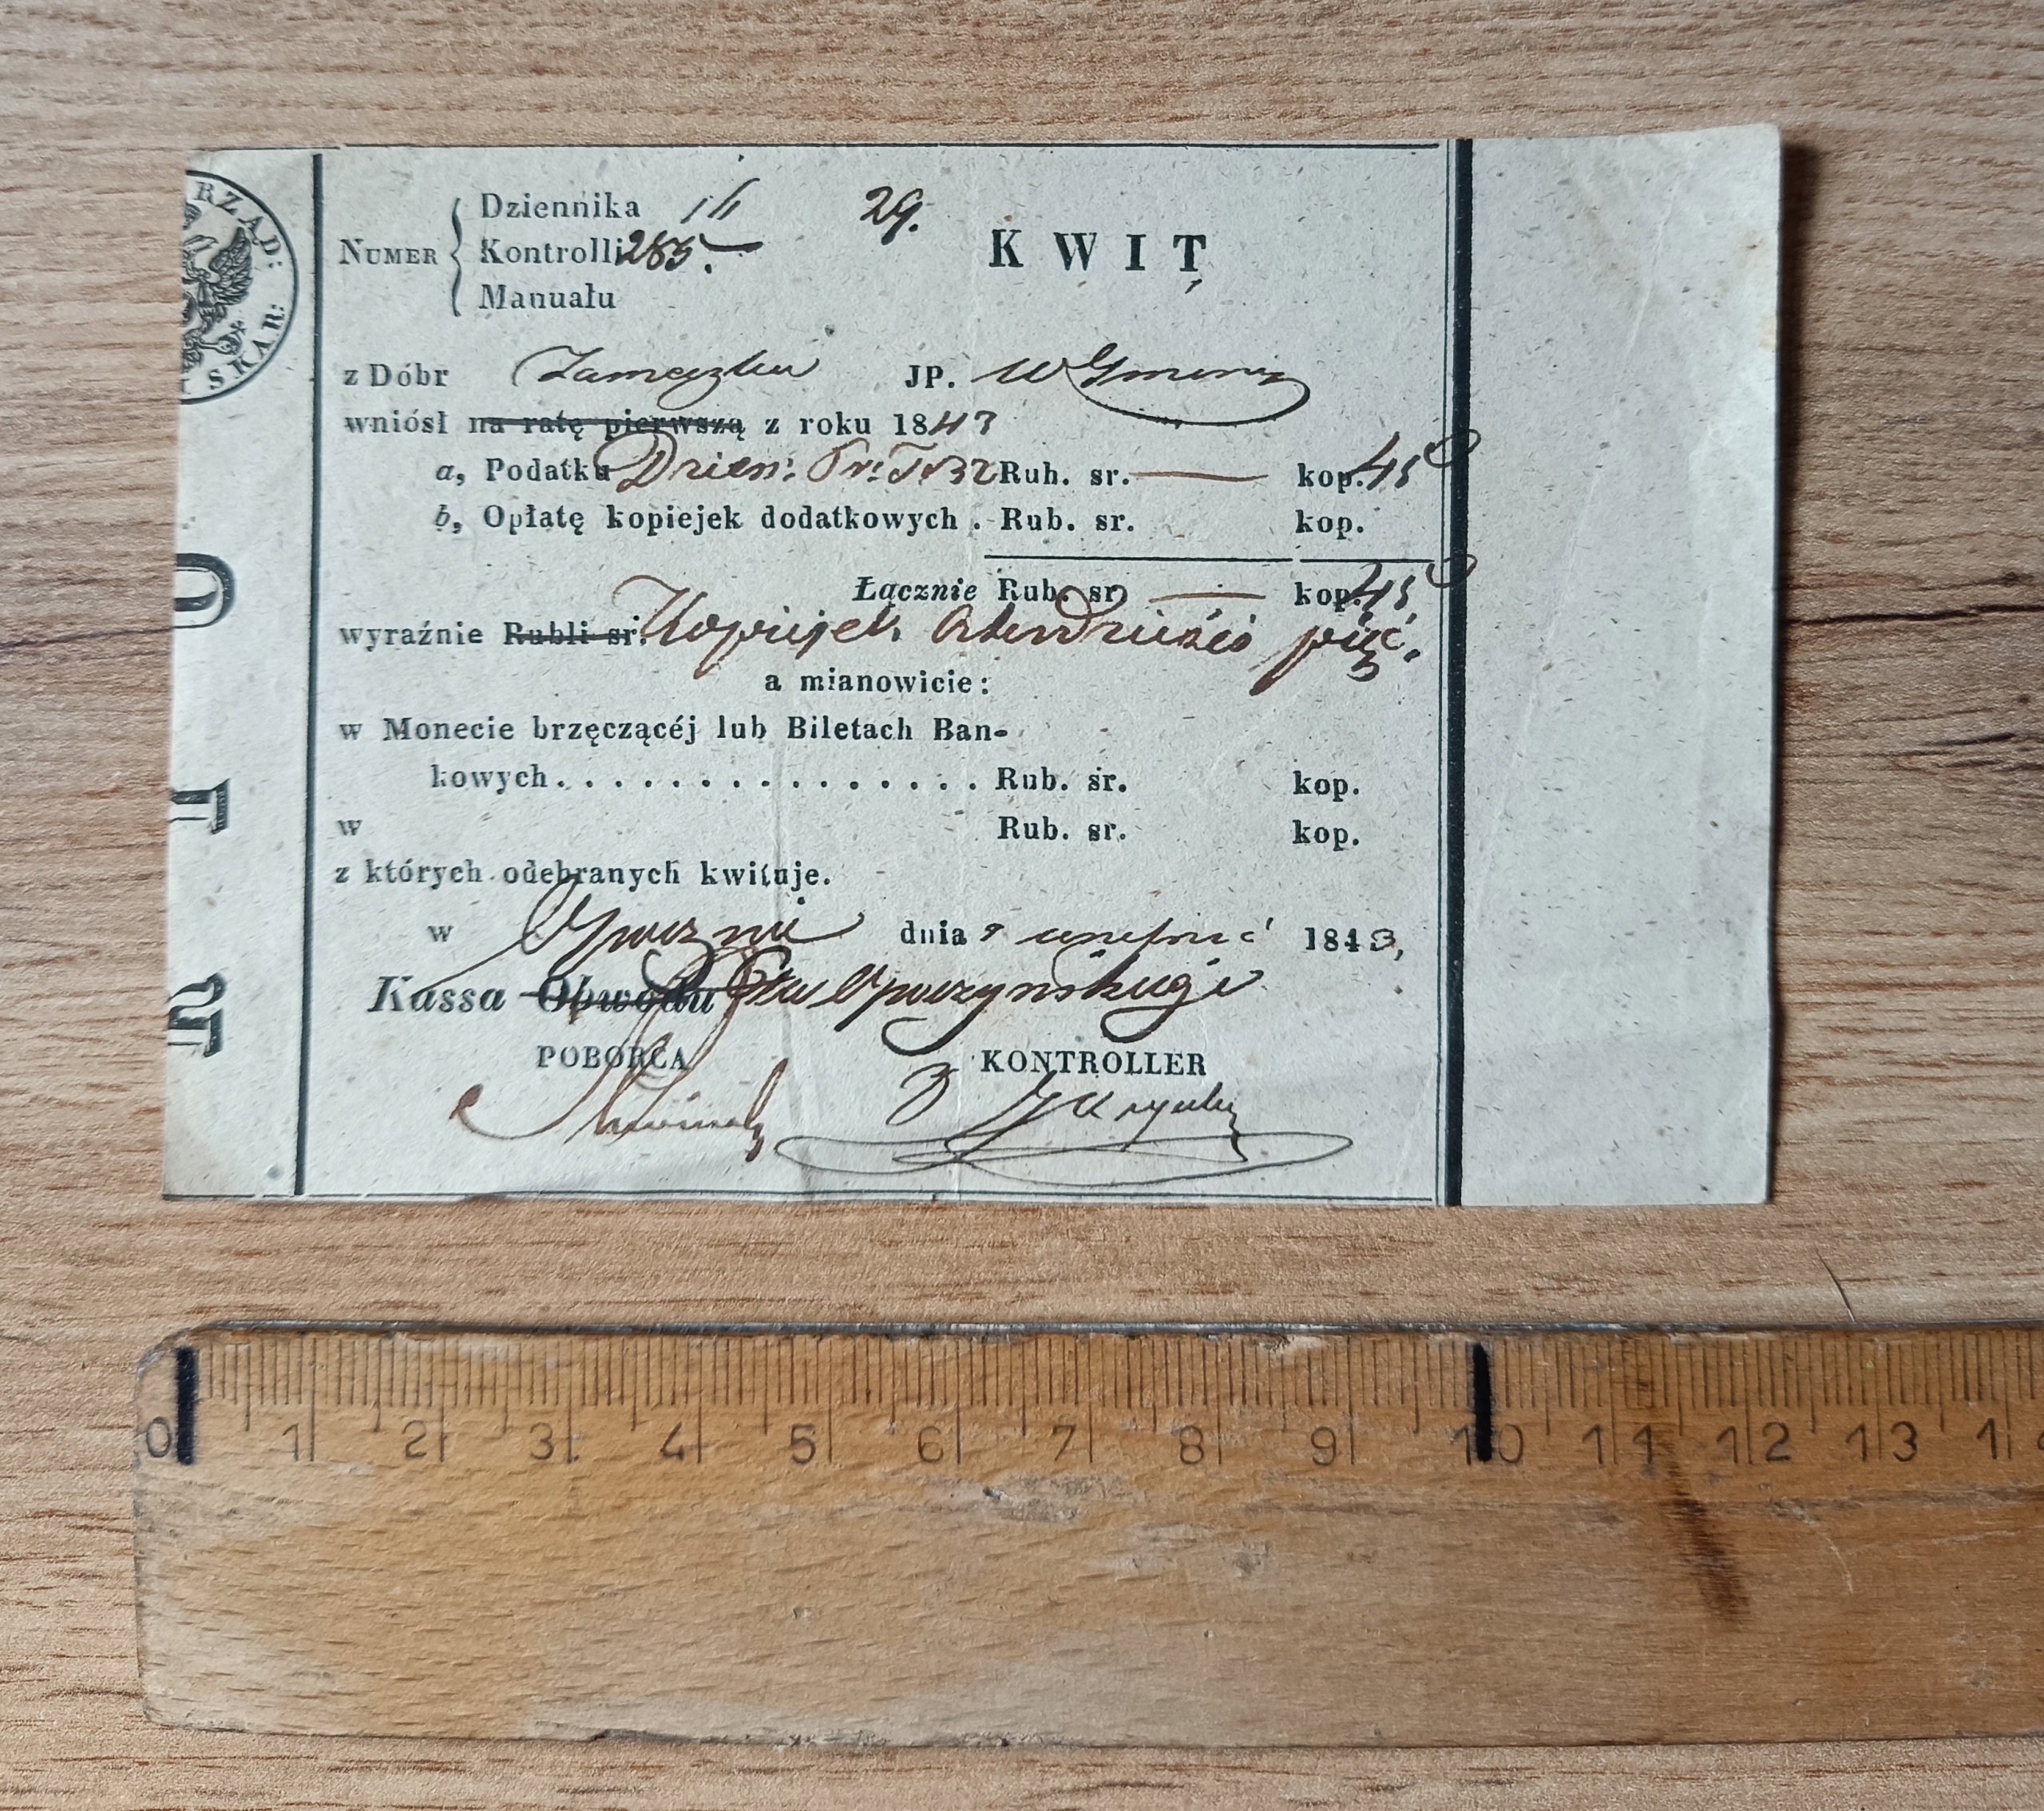 RZĄD: SKAR:
NUMER { Dziennika
29.
Kontrolli 285.
Manuału
KWIT
z Dóbr Zameczku JP. W Gminy
wniósł na ratę pierwszą z roku 1843
a, Podatku Rub. sr. — kop. 45
b, Opłatę kopiejek dodatkowych . Rub. sr. kop.
Łącznie Rub. sr. — kop. 45
wyraźnie Rubli sr. Kopiejek czterdzieści pięć.
a mianowicie:
w Monecie brzęczącéj lub Biletach Ban-
kowych . . . . . . . . . . . . . . . Rub. sr. kop.
w Rub. sr. kop.
z których odebranych kwituje.
w Opocznie dnia 1843,
Kassa Obwodu Ptu Opoczyńskiego
POBORCA KONTROLLER
0 1 2 3 4 5 6 7 8 9 10 11 12 13